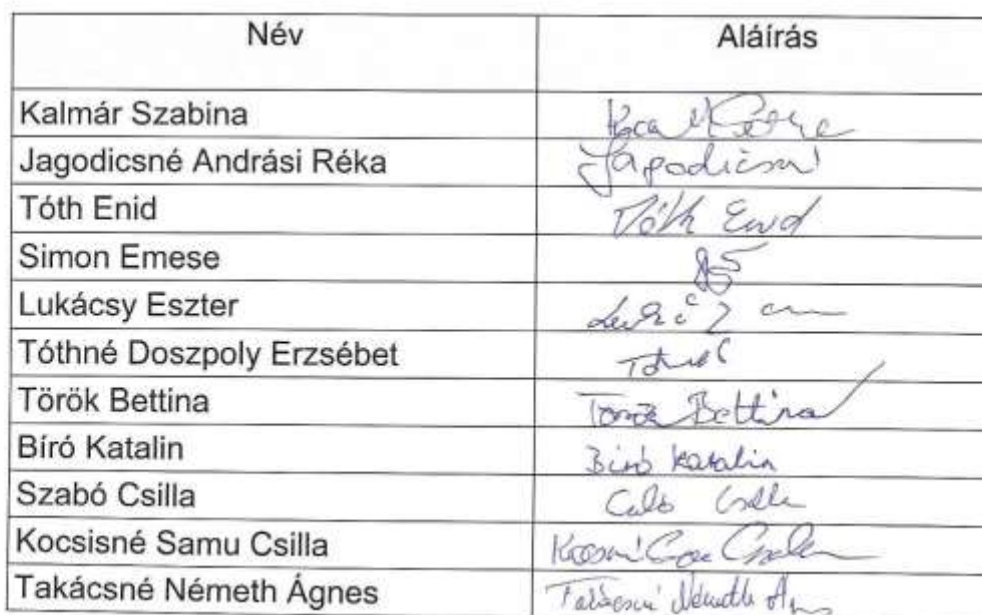 Név Aláírás
Kalmár Szabina
Jagodicsné Andrási Réka Jagodicsné
Tóth Enid Tóth Enid
Simon Emese
Lukácsy Eszter
Tóthné Doszpoly Erzsébet
Török Bettina Török Bettina
Bíró Katalin Bíró Katalin
Szabó Csilla
Kocsisné Samu Csilla
Takácsné Németh Ágnes Takácsné Németh